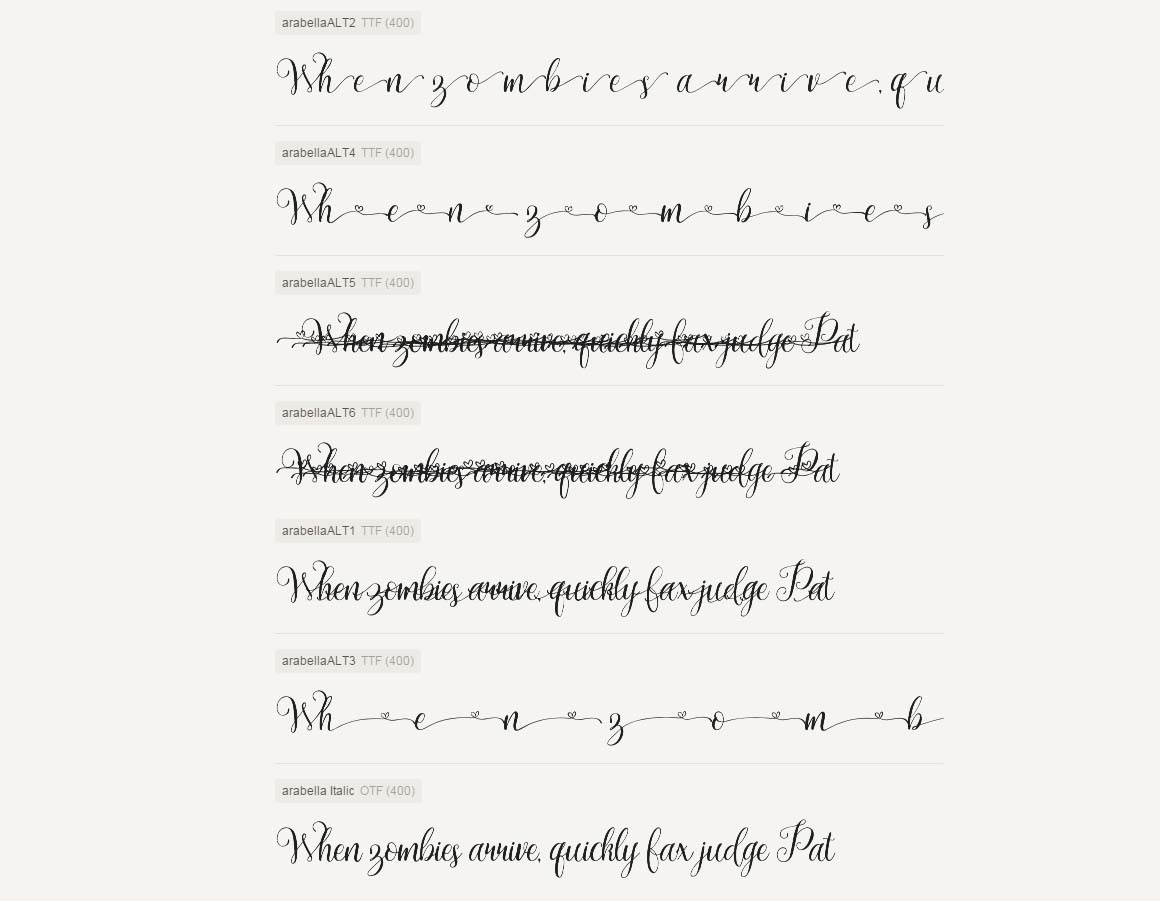 arabellaALT2 TTF (400)
When zombies arrive, qu
arabellaALT4 TTF (400)
When zombies
arabellaALT5 TTF (400)
When zombies arrive, quickly fax judge Pat
arabellaALT6 TTF (400)
When zombies arrive, quickly fax judge Pat
arabellaALT1 TTF (400)
When zombies arrive, quickly fax judge Pat
arabellaALT3 TTF (400)
When zomb
arabella Italic OTF (400)
When zombies arrive, quickly fax judge Pat